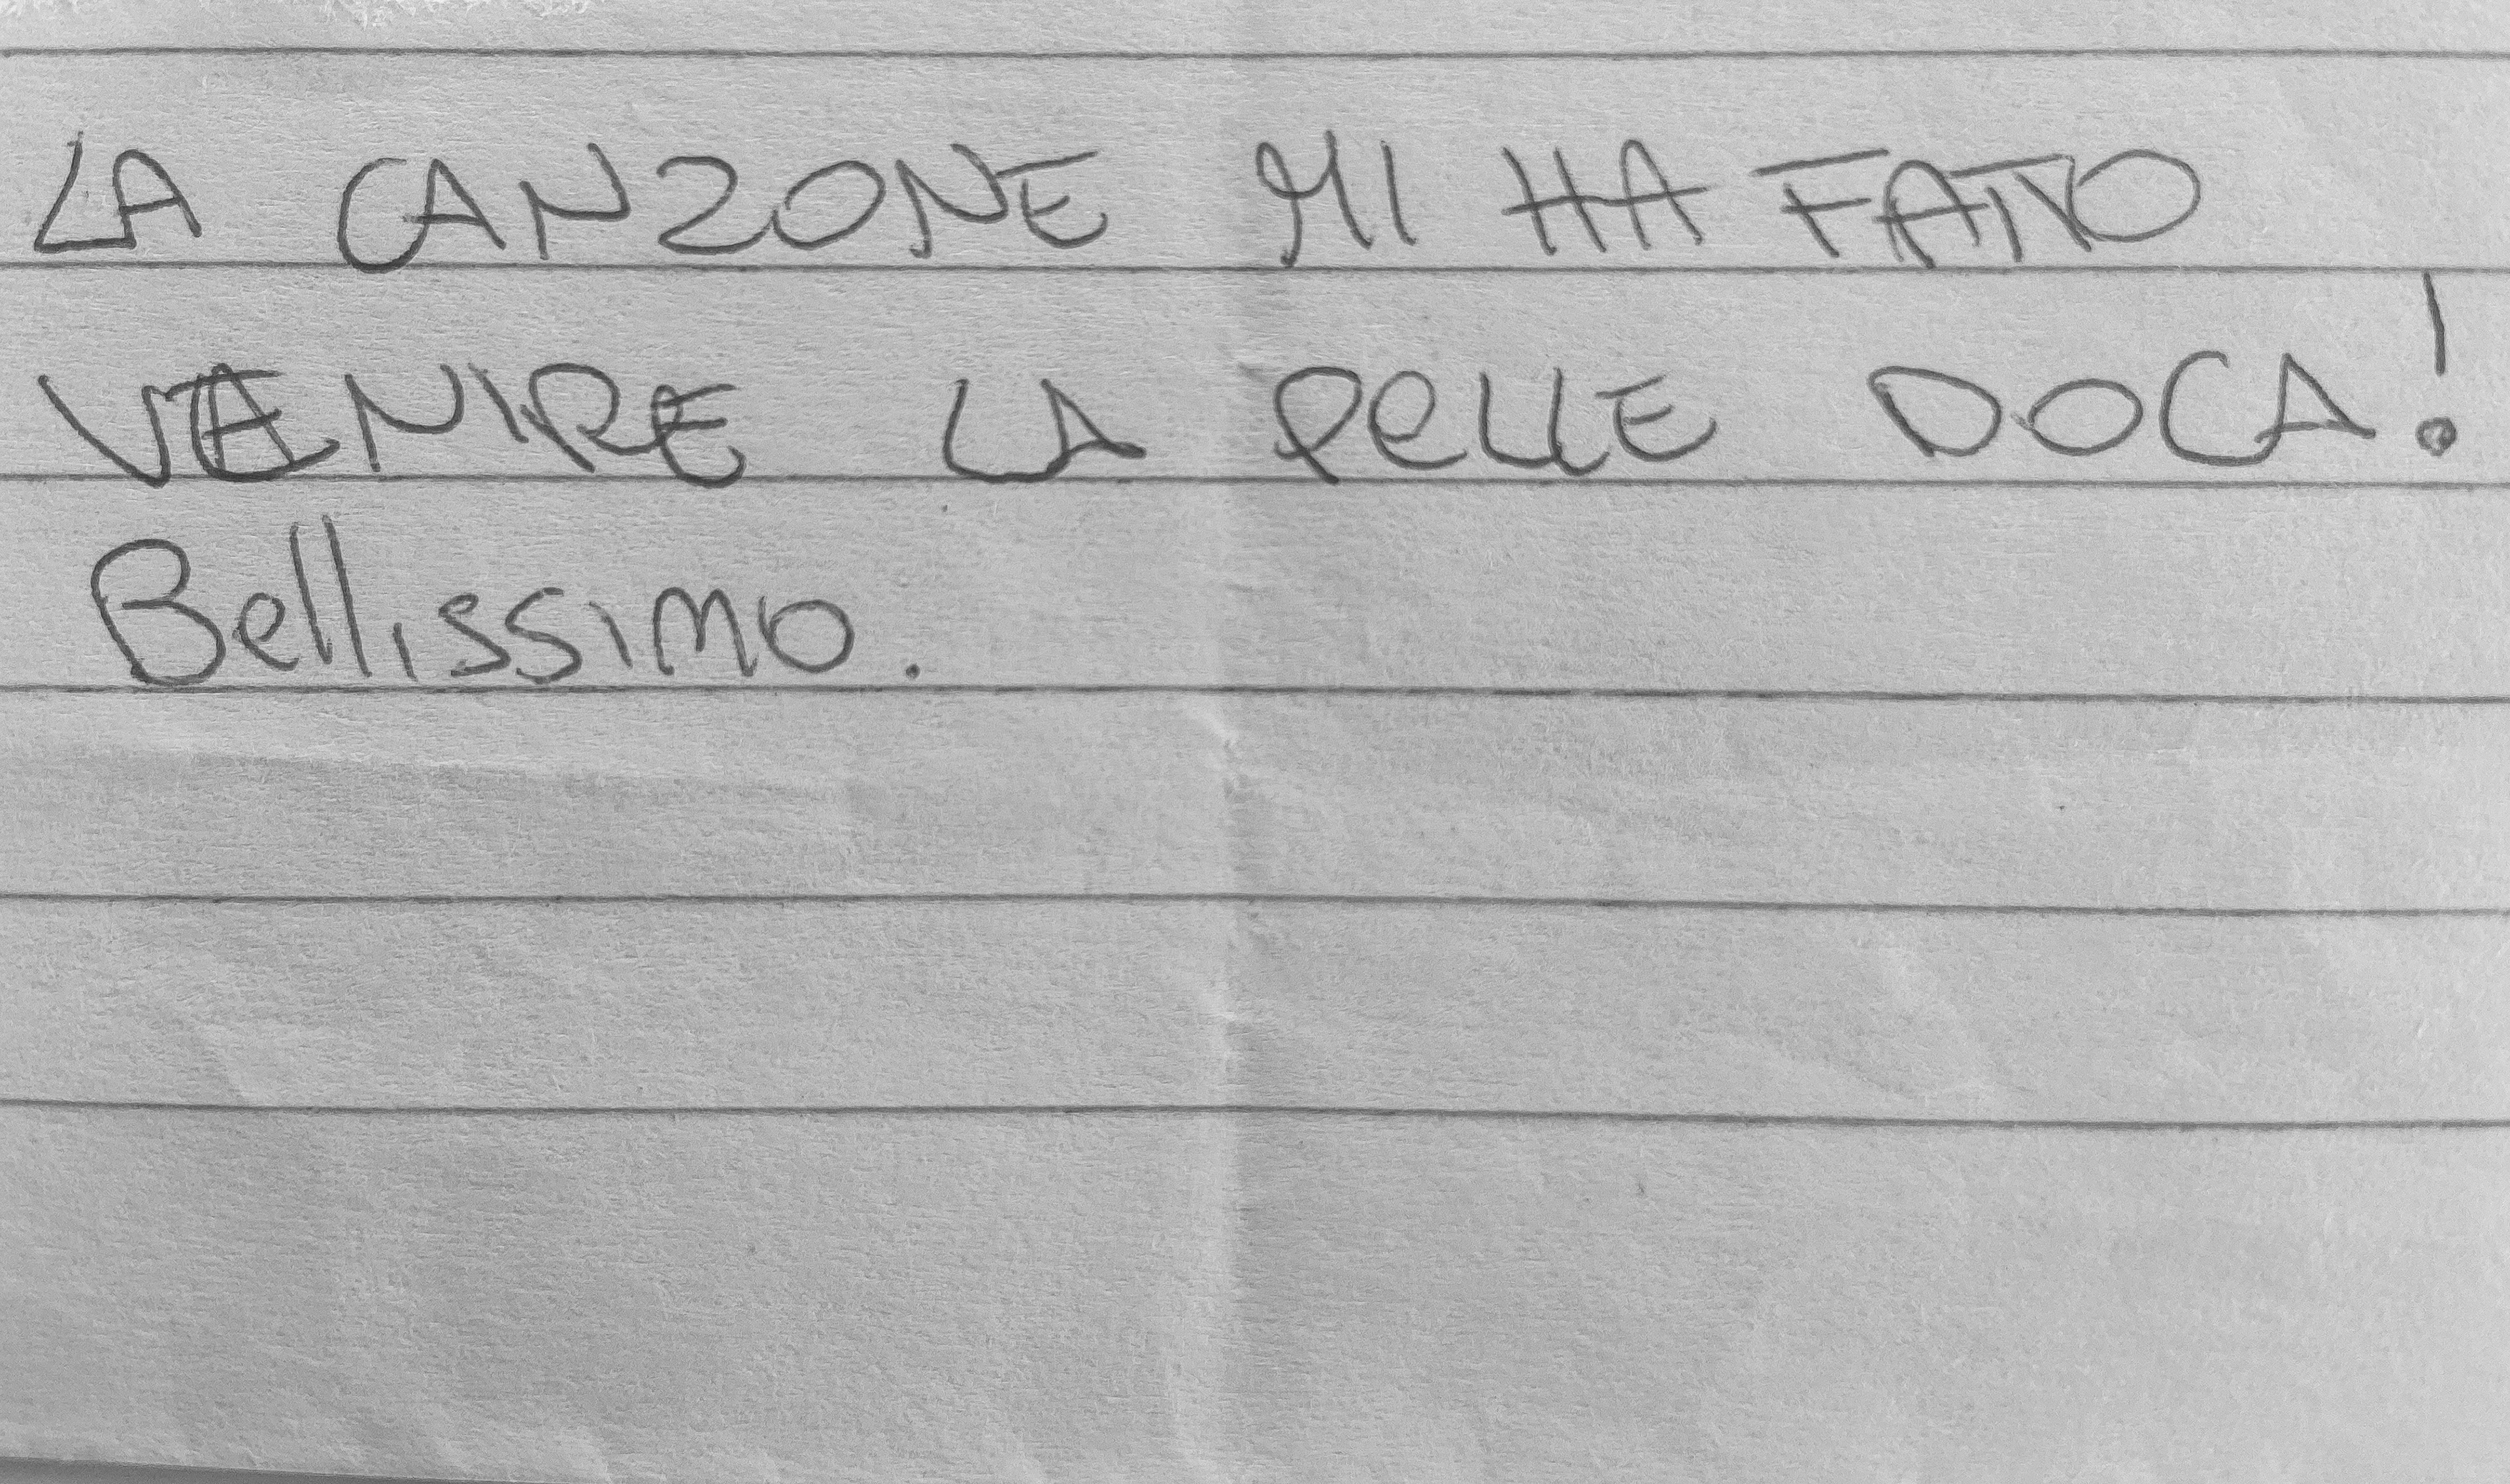 LA CANZONE MI HA FATTO
VENIRE LA PELLE DOCA!
Bellissimo.